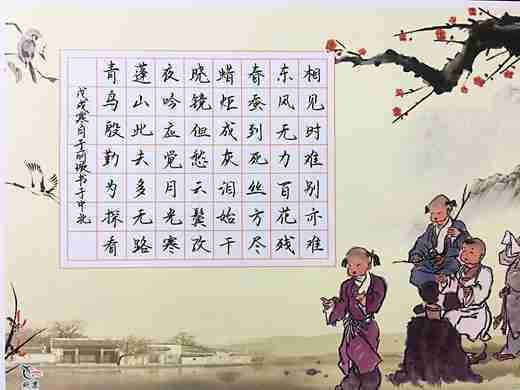 相见时难别亦难
东风无力百花残
春蚕到死丝方尽
蜡炬成灰泪始干
晓镜但愁云鬓改
夜吟应觉月光寒
蓬山此去多无路
青鸟殷勤为探看
戊戌寒月于丽书于